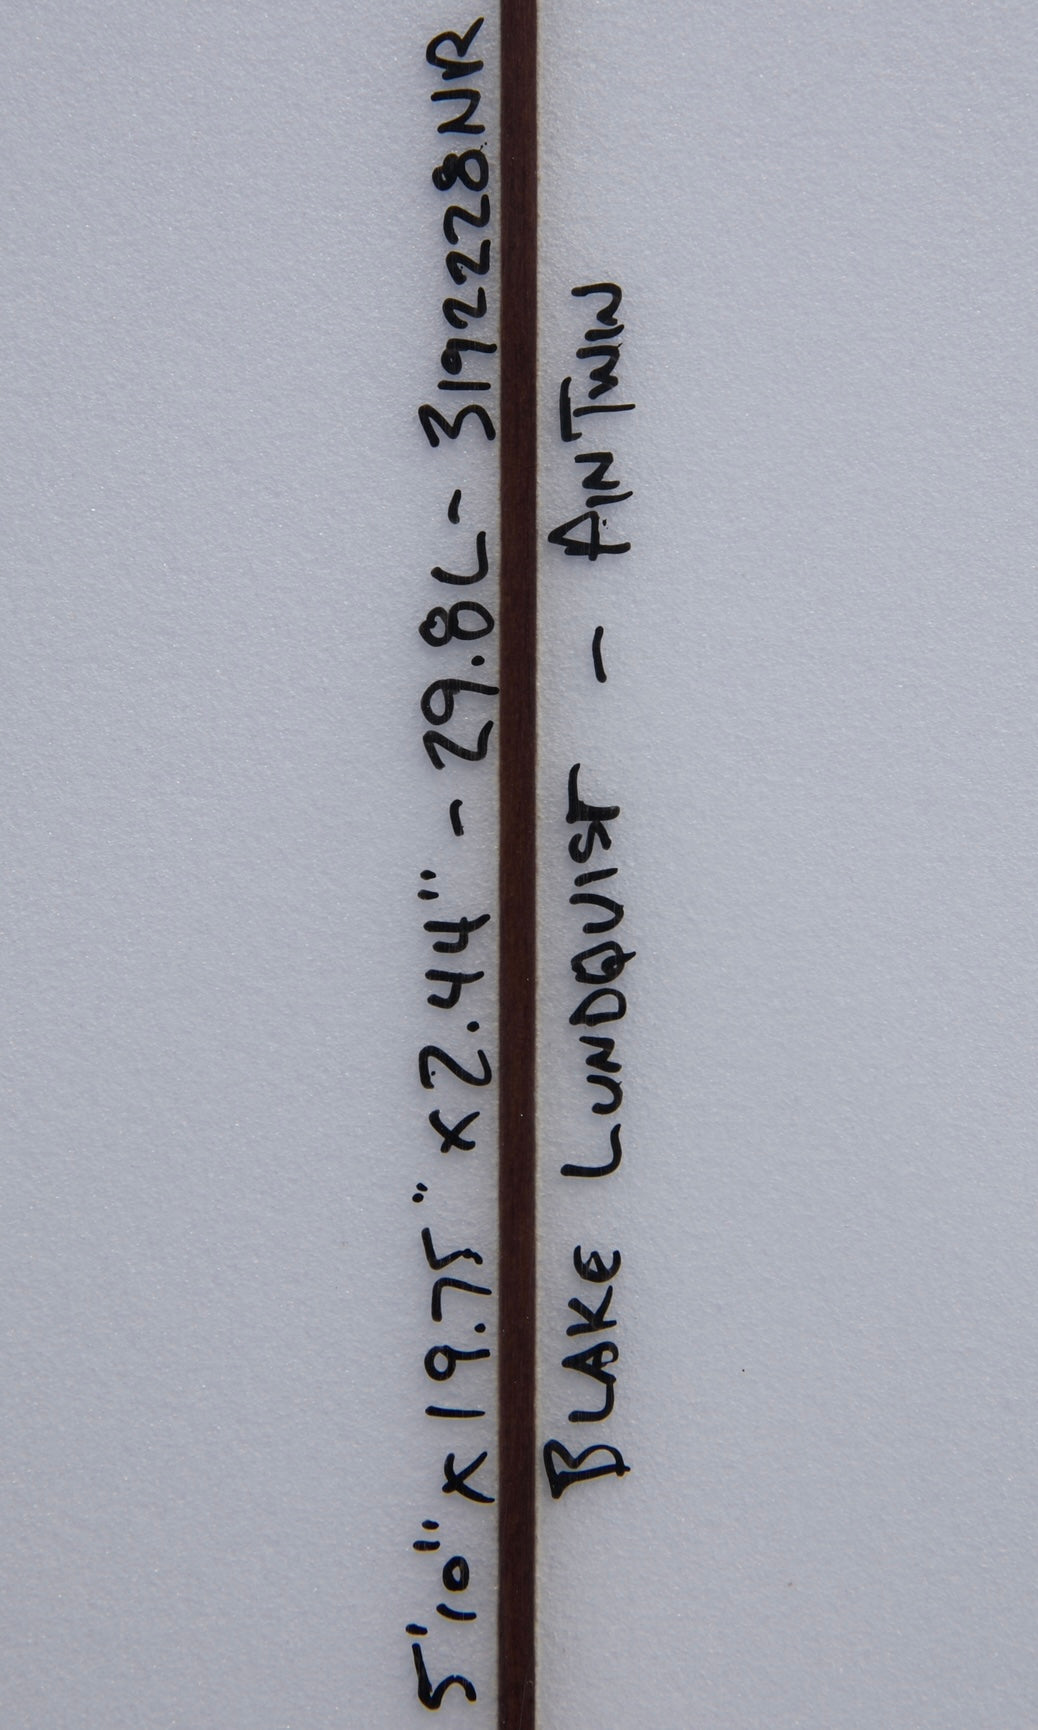 5'10" x 19.75" x 2.44" - 29.8L - 319228NR
BLAKE LUNDQUIST - AINTWIN